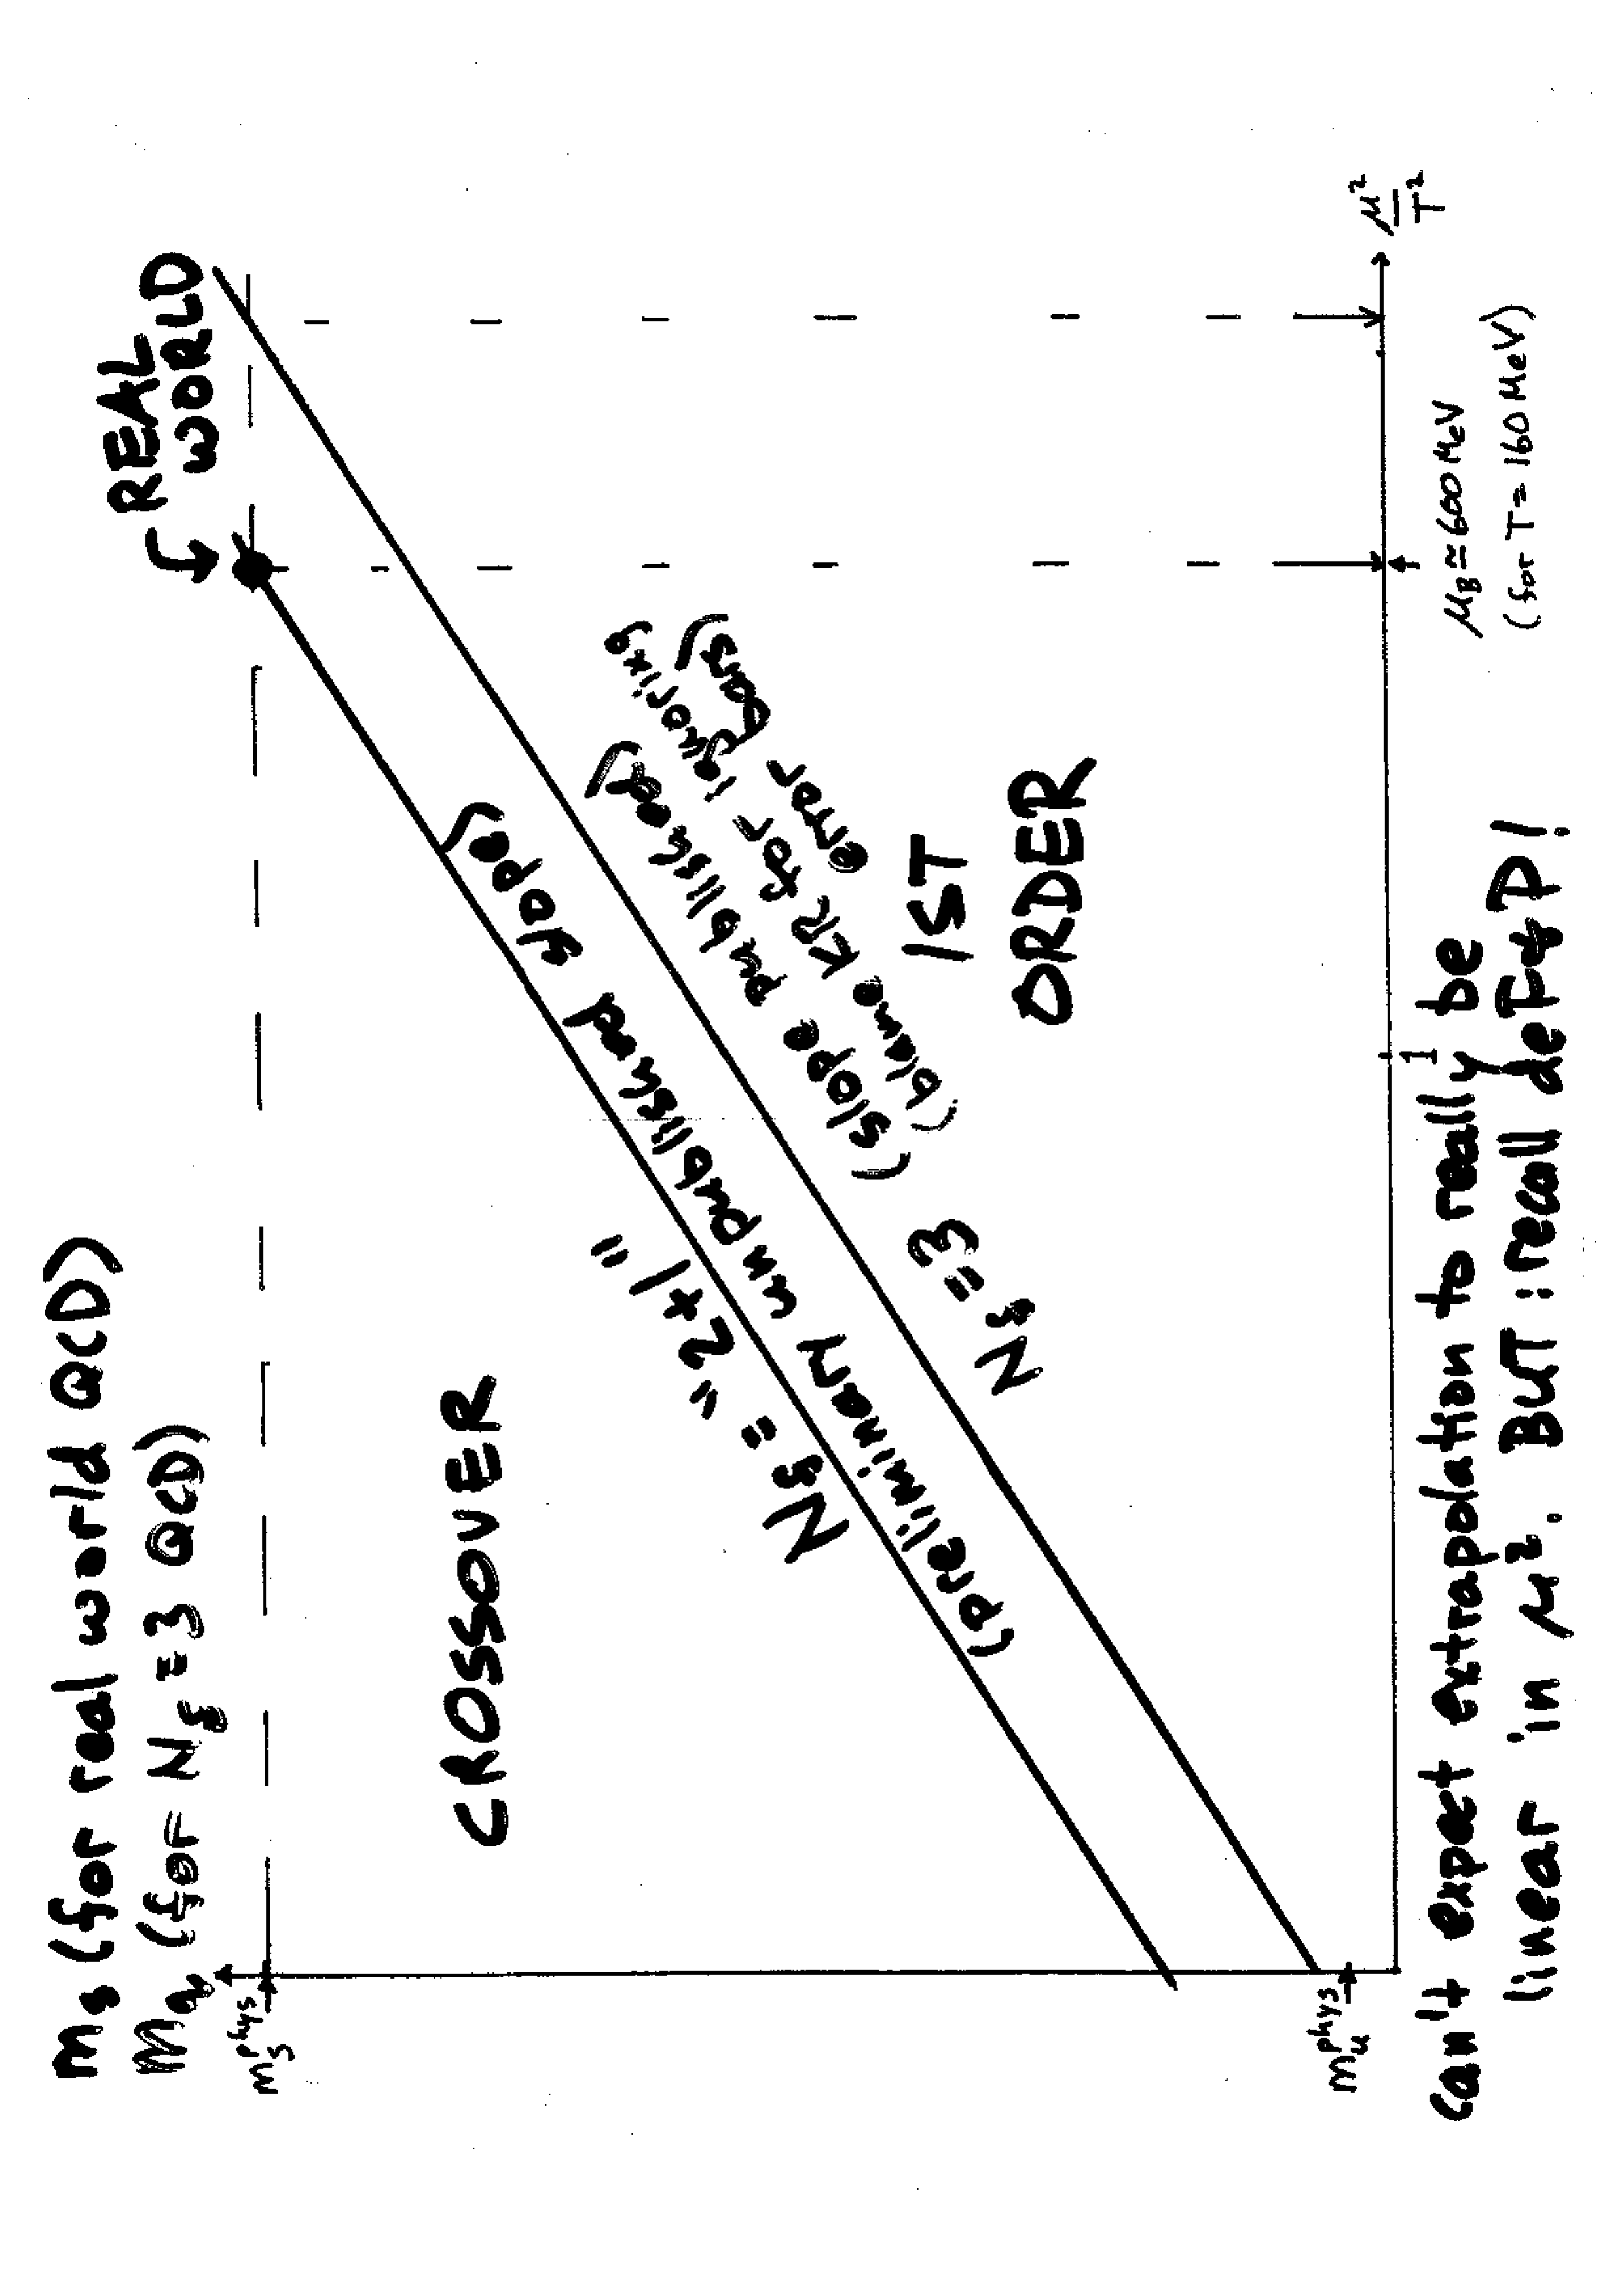 m_s (for real world QCD)
m_q (for N_f = 3 QCD)
m_s^phys
REAL
WORLD
CROSSOVER
N_f = "2+1"
(preliminary unpublished slope)
N_f = 3
(slope published)
(blame KR for ignoring
error bars)
1ST
ORDER
m_u^phys
1
μ²/T²
μ_B ≃ 600 MeV
(for T = 160 MeV)
can't expect extrapolation to really be
linear in μ². BUT: recall deF&P!